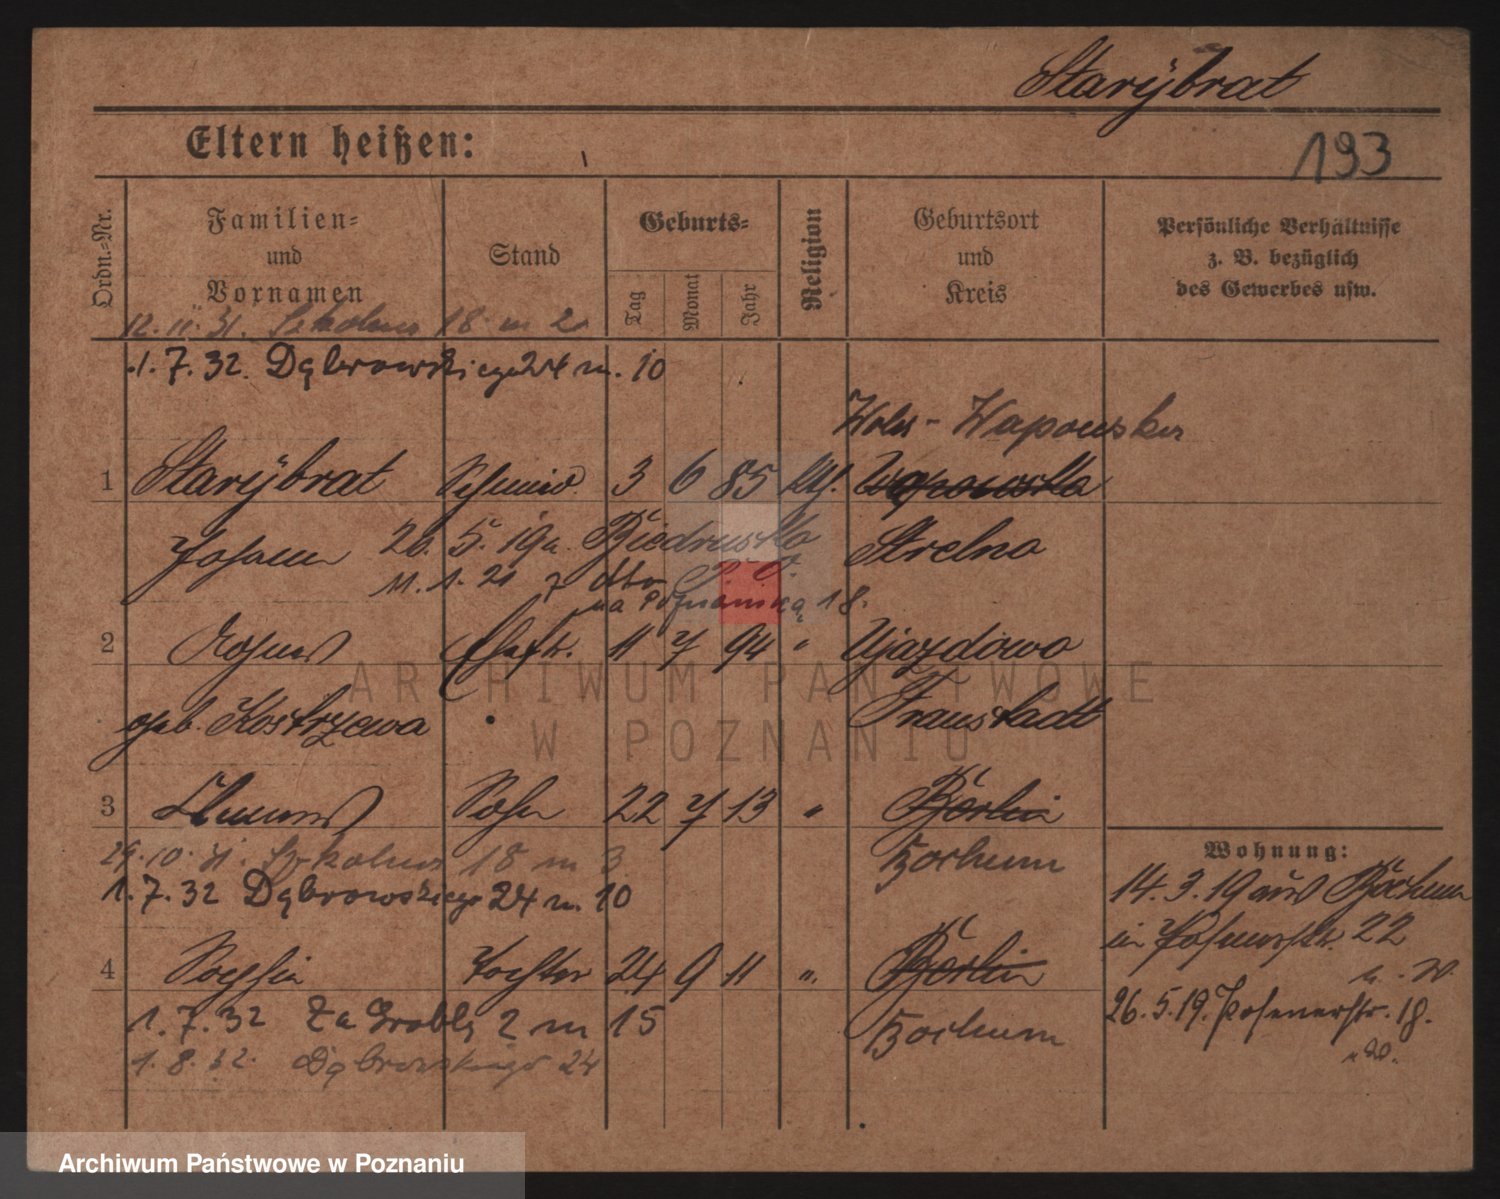 Starÿbrat
Eltern heißen:
193
Ordn.-Nr.
Familien-
und
Vornamen
Stand
Geburts-
Tag
Monat
Jahr
Religion
Geburtsort
und
Kreis
Persönliche Verhältnisse
z. B. bezüglich
des Gewerbes usw.
12. 11. 31. Szkolna 18 m 2
1. 7. 32. Dąbrowskiego 24 m. 10
Wapowska
1 Starÿbrat Schmied 3 6 85 kth. Wapowska
Johann 26. 5. 19 a. Biedrusko Strelno
11. 1. 21 z dto P. O.
na Poznańską 18.
2 Agnes Ehefr. 11 7 94 " Ujazdowo
geb. Kostrzewa Fraustadt
3 Sohn 22 7 13 " Berlin
29. 10. 31. Szkolna 18 m 3 Bochum
1. 7. 32 Dąbrowskiego 24 m. 10
4 Sophia Tochter 24 9 11 " Berlin
1. 7. 32 Za Groblą 2 m 15 Bochum
1. 8. 32. Dąbrowskiego 24
Wohnung:
14. 3. 19 aus Bochum
in Posenerstr. 22
26. 5. 19. Posenerstr. 18.
ARCHIWUM PAŃSTWOWE
W POZNANIU
Archiwum Państwowe w Poznaniu